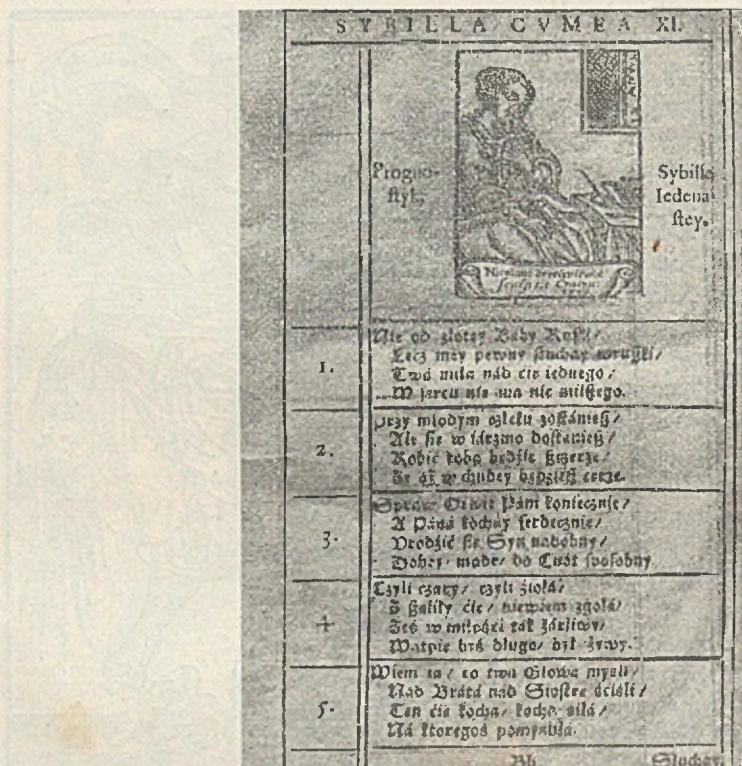 SYBILLA CVMEA XI.
Progno-
ſtyk,
Sybille
Iedena
ſtey.
1.
Nie od złotey Baby Ruskí/
Lecz mey pewny ſłuchay wrużki/
Twá miłá nád cię iednego/
W ſercu nie ma nic milßego.
2.
Przy młodym człeku zoſtánieß/
Ale ſie w iárzmo doſtánieß/
Robić tobą będźie ßczerze/
Że áż w chudey będźieß cerze.
3.
Pám koniecznie/
A Páná kochay ſerdecznie/
Vrodźić ſie Syn nadobny/
do Cnót ſpoſobny
4.
Czyli czáry/ czyli źiołá/
cie/ niewiem zgołá/
Żeś w miłośći ták żárliwy/
Wątpię byś długo był żywy.
5.
Wiem ia/ co twa Głowa myśli/
Nád Brátá nád Sioſtrę śćiśli/
Ten ćie kocha/ kocha śiłá/
Ná ktoregoś pomyśliłá.
Bb
Słuchay.